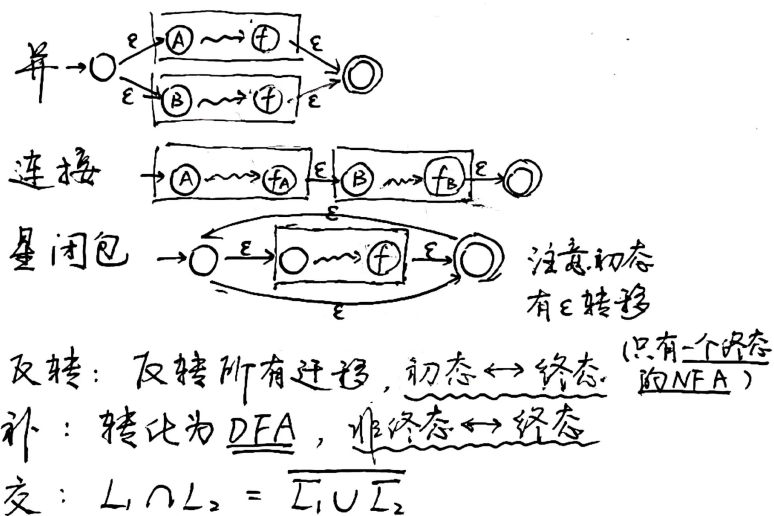 并 ε A f ε
ε B f ε
连接 A fA ε B fB ε
ε
星闭包 ε f ε 注意初态
ε 有ε转移
反转: 反转所有迁移, 初态↔终态. (只有一个终态
的NFA)
补: 转化为DFA, 非终态↔终态
交: L₁∩L₂ = \overline{\overline{L₁}∪\overline{L₂}}